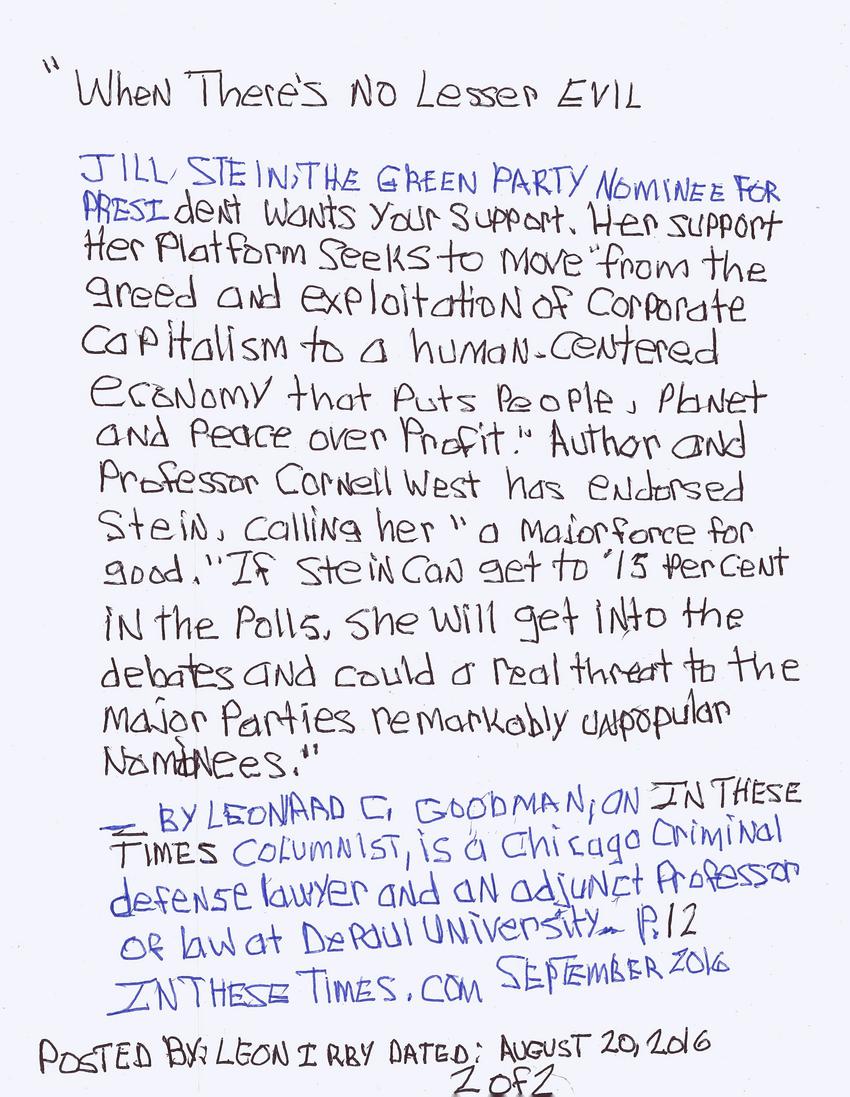 "When There's No Lesser EVIL
JILL STEIN, THE GREEN PARTY NOMINEE FOR
PRESIdent wants your support. Her support
Her Platform seeks to move "from the
greed and exploitation of Corporate
Capitalism to a human-centered
economy that puts People, Planet
and Peace over Profit." Author and
Professor Cornell West has endorsed
Stein, calling her "a major force for
good." If Stein Can get to '15 Per Cent
in the Polls, she will get into the
debates and could a real threat to the
major Parties remarkably unpopular
Nominees."
— BY LEONARD C. GOODMAN, AN IN THESE
TIMES COLUMNIST, is a Chicago Criminal
defense lawyer and an adjunct Professor
of law at DePaul University— P.12
IN THESE TIMES.COM SEPTEMBER 2016
POSTED BY: LEON IRBY DATED: AUGUST 20, 2016
2 of 2